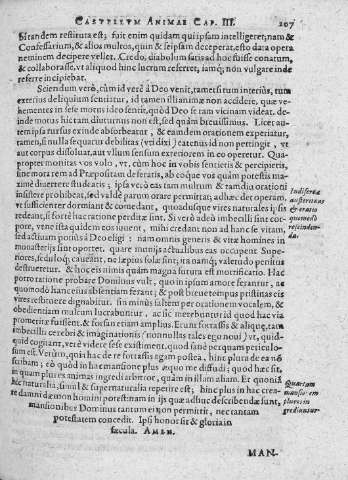 CASTELLVM ANIMAE CAP. III. 207
bitandem restituta est; fuit enim quidam qui ipsam intelligeret, nam &
Confessarium, & alios multos, quin & seipsam deceperat, esto data opera
neminem decipere vellet. Credo, diabolum satis ad hoc suisse conatum,
& collaborasse, vt aliquod hinc lucrum referret, iamq; non vulgare inde
referre incipiebat.
Sciendum verò, cùm id verè à Deo venit, tametsi tum interiùs, tum
exterius deliquium sentiatur, id tamen illi animæ non accidere, quæ ve-
hementes in sese motus ideo sentit, quòd Deo se tam vicinam videat. de-
inde motus hic tam diuturnus non est, sed quàm breuissimus. Licet au-
tem ipsa rursus exinde absorbeatur, & eandem orationem experiatur,
tamen, si nulla sequatur debilitas (vti dixi) catenus id non pertingit, vt
aut corpus dissoluat, aut vllum sensum exteriorem in eo operetur. Qua-
propter monitas vos volo, vt, cùm hoc in vobis senseris & perceperitis,
sine mora rem ad Præpositam deferatis, ab eoque vos quàm potestis ma-
ximè diuertere studeatis; ipsa verò eas tam multum & tamdiu orationi
insistere prohibeat, sed valdè parum orare permittat; adhæc det operam,
vt sufficienter dormiant & comedant, quoadusque vires naturales ijs
redeant, si fortè hac ratione perditæ sint. Si verò adeò imbecilli sint cor-
pore, vt ne ista quidem eos iuuent, mihi credant non ad hanc se vitam,
sed actiuam potiùs à Deo eligi: nam omnis generis & vitæ homines in
monasterijs sint oportet. quare munijs actualibus eas occupent Supe-
riores, sedulòq; caueant, ne sæpius solæ sint; ita namq; valetudo penitus
destrueretur. & hoc eis nimis quàm magna futura est mortificatio. Hac
porro ratione probare Dominus vult, quo in ipsum amore ferantur, ac
quomodo hanc eius absentiam ferant; & post breue tempus pristinas eis
vires restituere dignabitur. sin minùs saltem per orationem vocalem, &
obedientiam multum lucrabuntur, ac sic merebuntur id quod hac via
promeritæ fuissent. & forsan etiam amplius. Erunt fortassis & aliquæ, tam
imbecilli cerebri & imaginationis (nonnullas tales ego noui) vt, quid-
quid cogitant, verè videre sese existiment. quod sanè perquam periculo-
sum est. Verùm, quia hac de re fortassis agam postea, hinc plura de ea non
scribam; eò quòd in hac mansione plus æquo me diffudi; quod hæc sit,
in quam plures animas ingredi arbitror, quàm in illam aliam. Et quonia
hîc naturalia, simul & supernaturalia reperire est; hinc plus in hac crea-
re damni dæmon homini potest nam in ijs quæ adhuc describendæ sunt,
mansionibus Dominus tantum ei non permittit, nec tantam
potestatem concedit. Ipsi honor sit & gloria in
sæcula. AMEN.
Indiscretæ
austeritates
& oratio
quomodo
rescinden-
da.
Quartam
mansionem
plures in-
grediuntur
MAN-